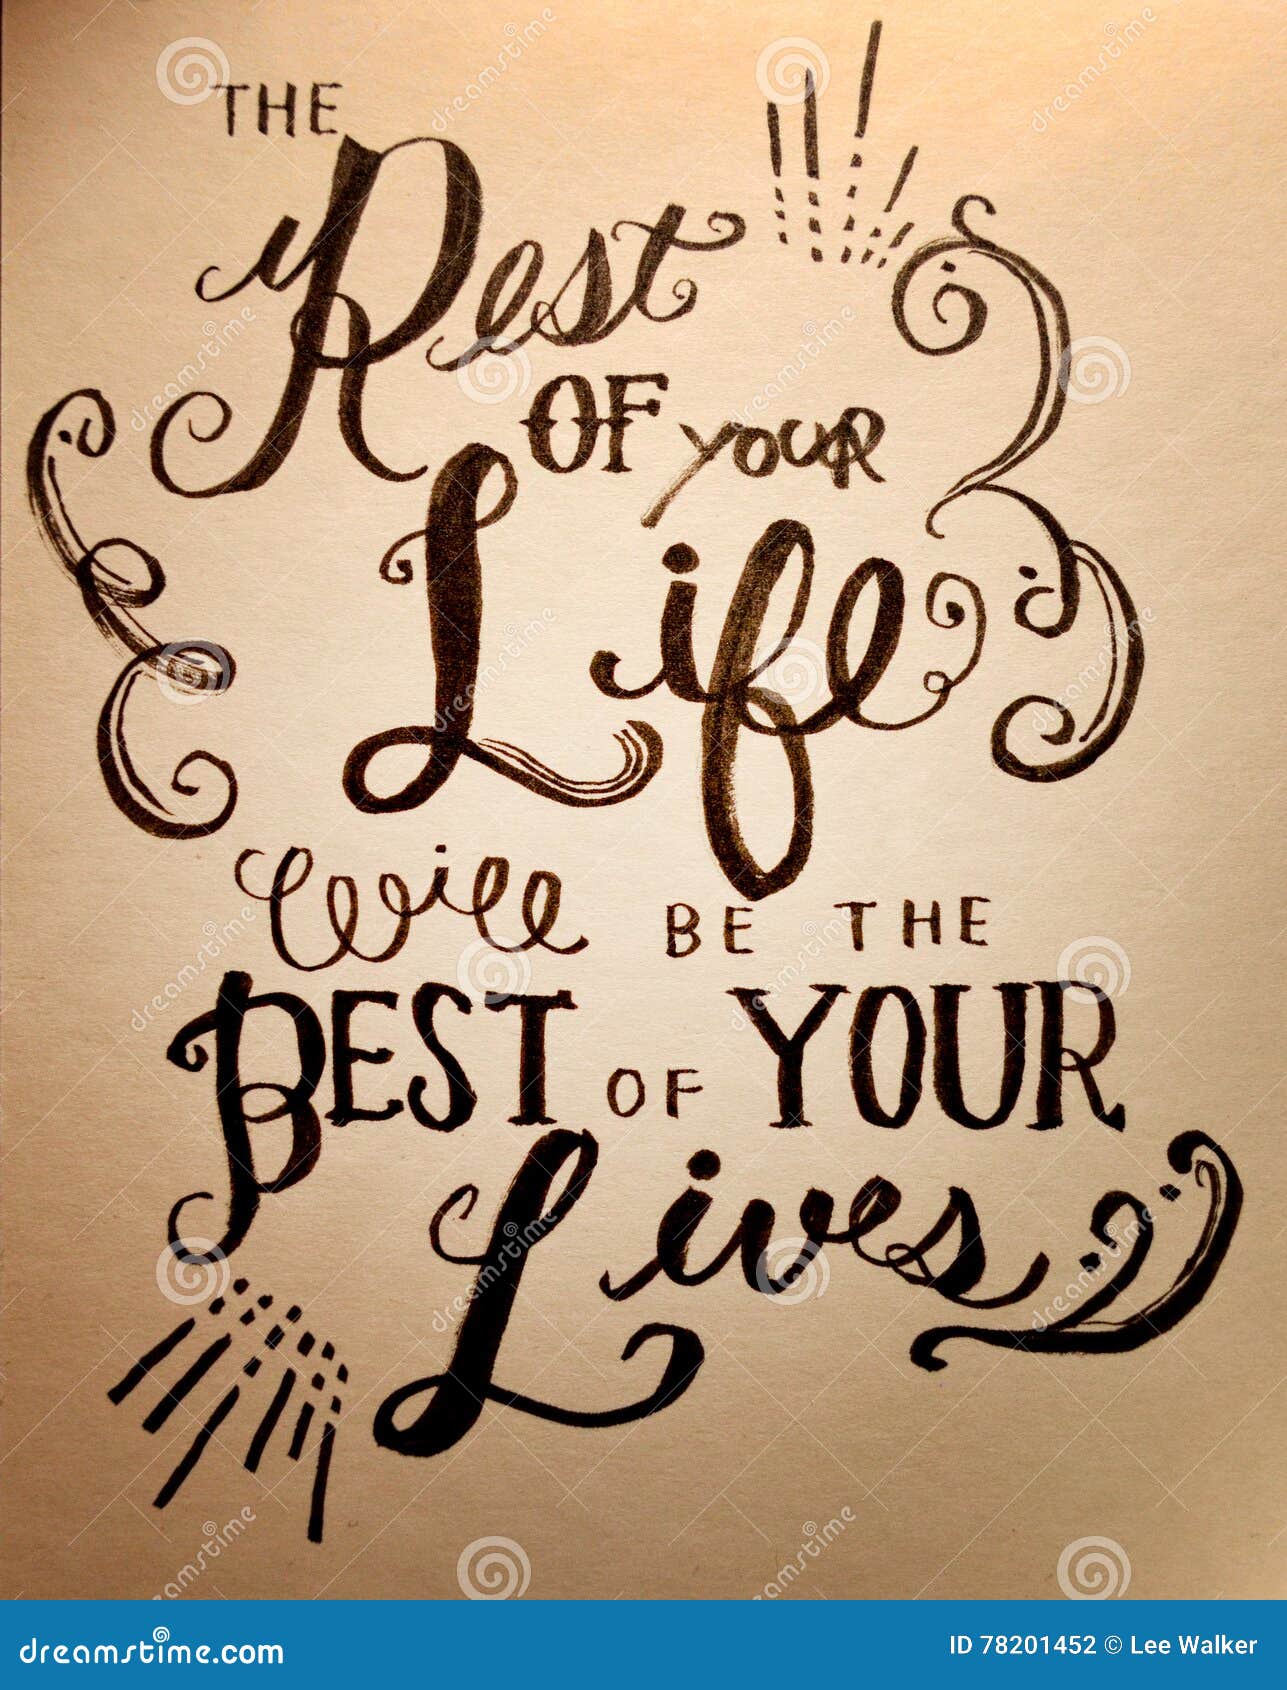 THE
Rest
OF your
Life
Will BE THE
BEST OF YOUR
Lives
dreamstime.com
ID 78201452 © Lee Walker